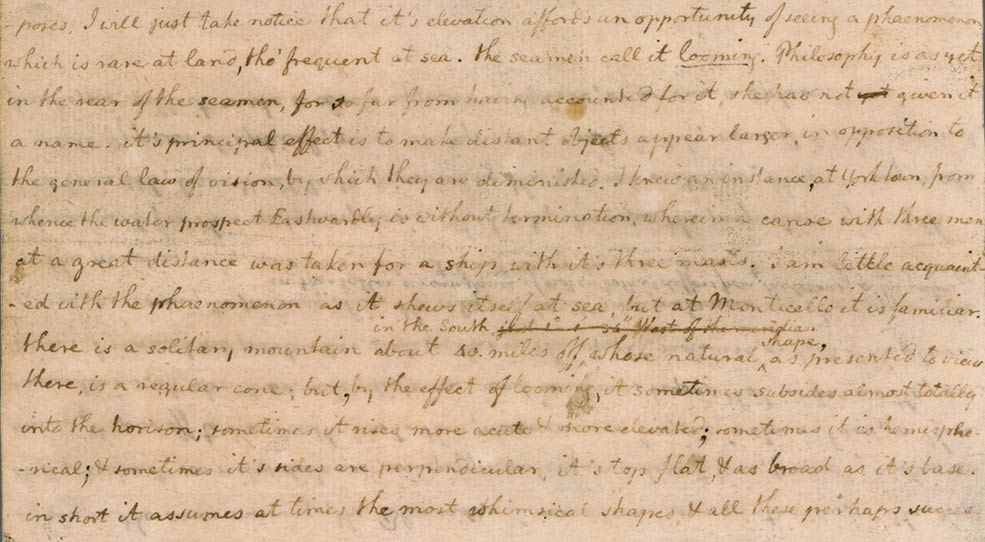 -poses, I will just take notice that it's elevation affords an opportunity of seeing a phaenomenon
which is rare at land, tho' frequent at sea. the seamen call it looming. Philosophy is as yet
in the rear of the seamen, for so far from having accounted for it, she has not given it
a name. it's principal effect is to make distant objects appear larger, in opposition to
the general law of vision, by which they are diminished. I knew an instance, at York town, from
whence the water prospect Eastwardly is without termination, wherein a canoe with three men
at a great distance was taken for a ship with it's three masts. I am little acquaint-
-ed with the phaenomenon as it shews itself at sea, but at Monticello it is familiar.
in the South West of the meridian
shape,
there is a solitary mountain about 40. miles off, whose natural as presented to view
there, is a regular cone; but, by the effect of looming, it sometimes subsides almost totally
into the horison; sometimes it rises more acute & more elevated; sometimes it is hemisphe-
-rical; & sometimes it's sides are perpendicular, it's top flat, & as broad as it's base.
in short it assumes at times the most whimsical shapes, & all these perhaps succes